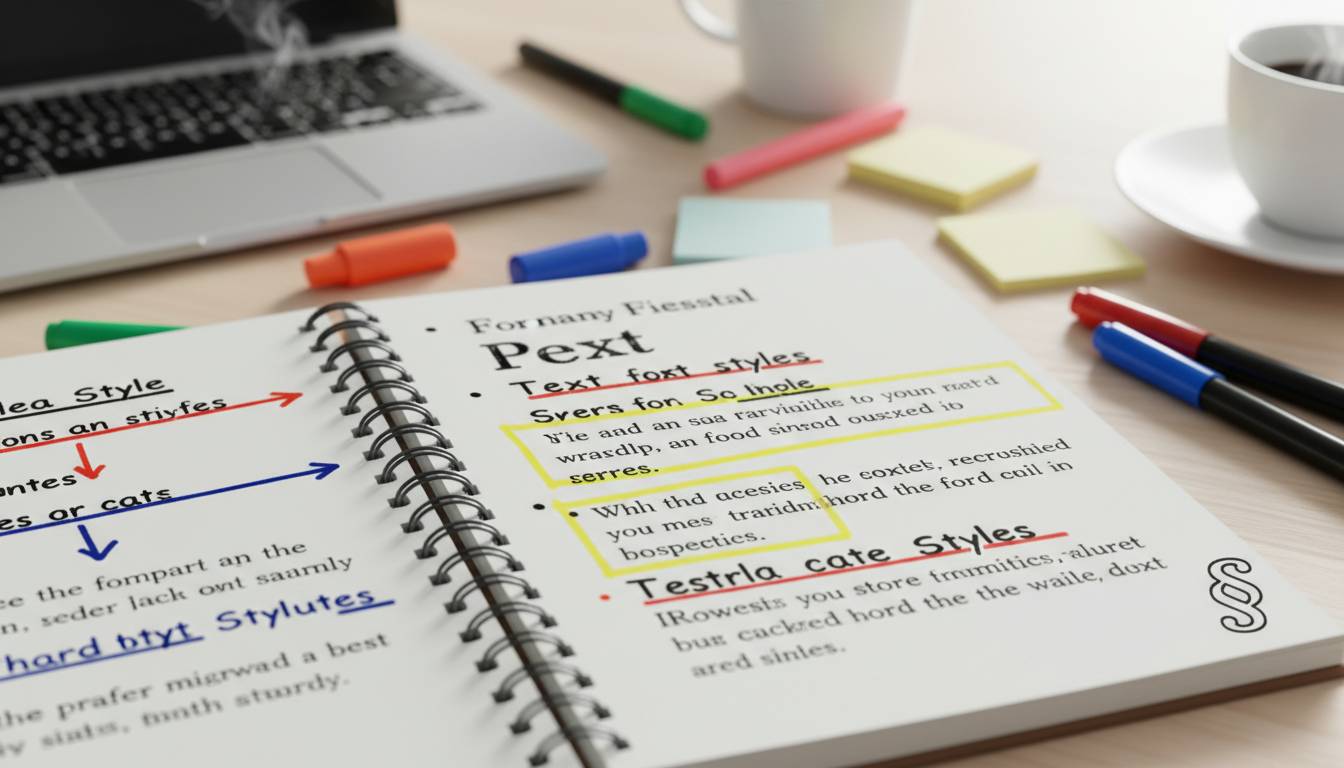 lea Style
ons an stivfes
ontes
es or cats
ee the fompart an the
n, seder lack owt saamly
hard btyt Stylutes
the prafer migrwad a best
sialts, tnnth sturdy.
• Fornany Fiesstal
Pext
• Text foxt styles
Svers fon So lnole
Yie and an sua rarviniihe to yourı
wrasdlp, an food sinsod ousxed io
serres.
• • Whh thd acesies he coxtet, recrushied
you mes hord the ford cuil in
bospectics.
• Testrla cate Styles
IRowests you store
bug cackzed hord the the waile, doxt
ared sintes.
§